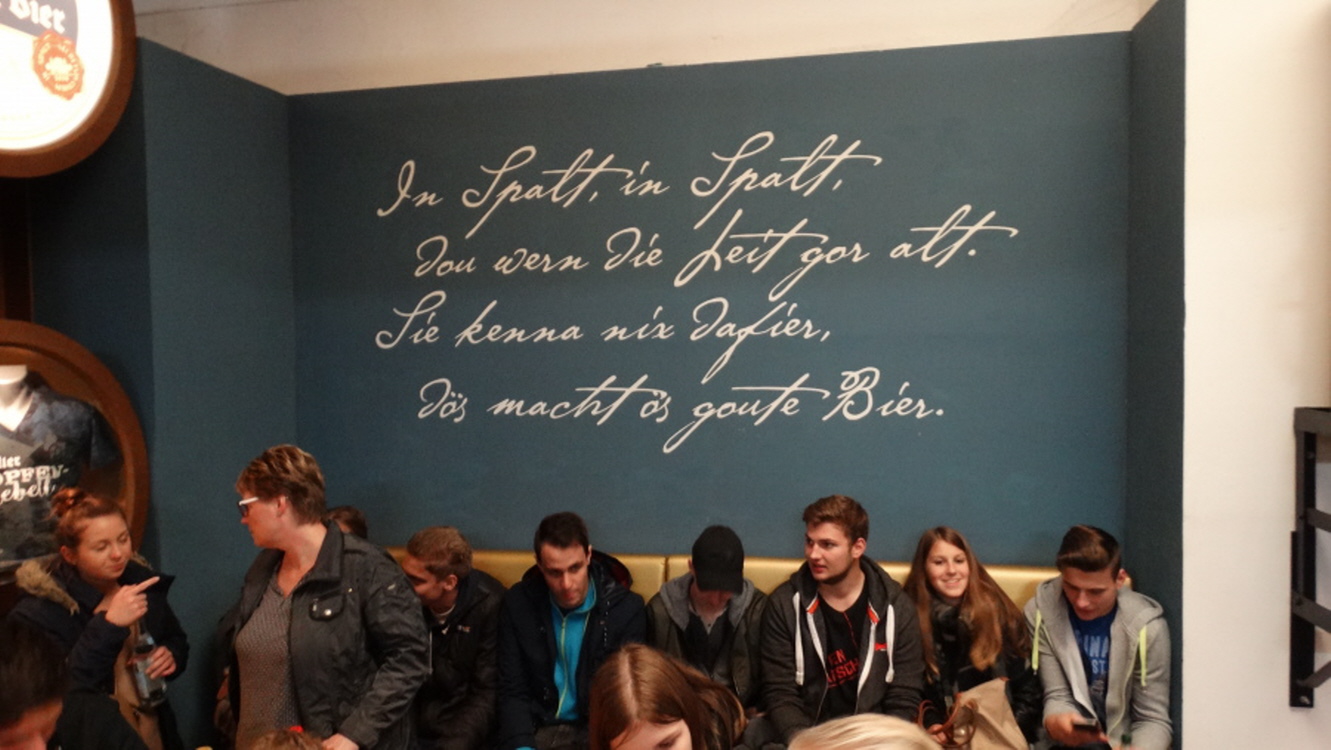 Bier
In Spalt, in Spalt,
dou wern die Leit gor alt.
Sie kenna nix dafier,
dös macht ös goute Bier.